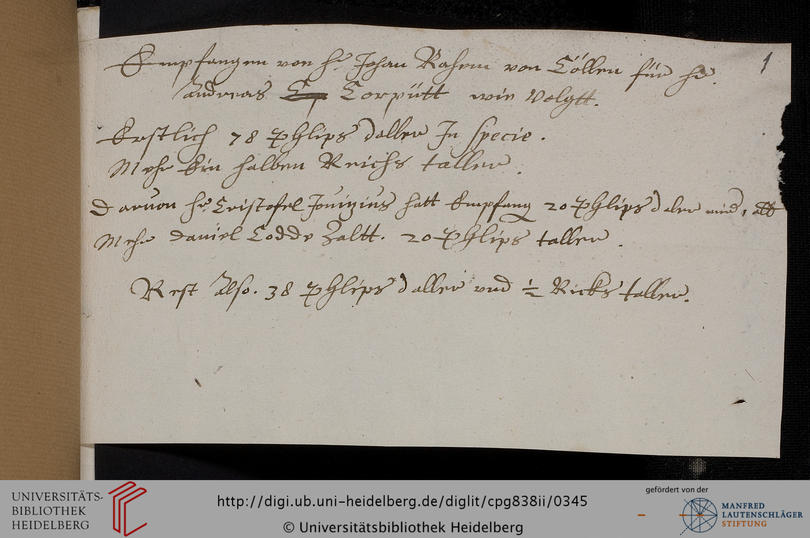 1
Empfangen von hr Johan Rahem von Cöllen für hr.
Andreas Corpütt wie Volgtt.
Erstlich 78 Phlips daller In specie.
Mehr Ein halben Reichs taller.
Daruon hr Cristofel hatt Empfang 20 Phlips daler
Mehr Daniel Codde Zaltt. 20 Phlips taller.
Rest Also. 38 Phlips daller vnd ½ Ricks taller.
UNIVERSITÄTS-
BIBLIOTHEK
HEIDELBERG
http://digi.ub.uni-heidelberg.de/diglit/cpg838ii/0345
© Universitätsbibliothek Heidelberg
gefördert von der
MANFRED
LAUTENSCHLÄGER
STIFTUNG